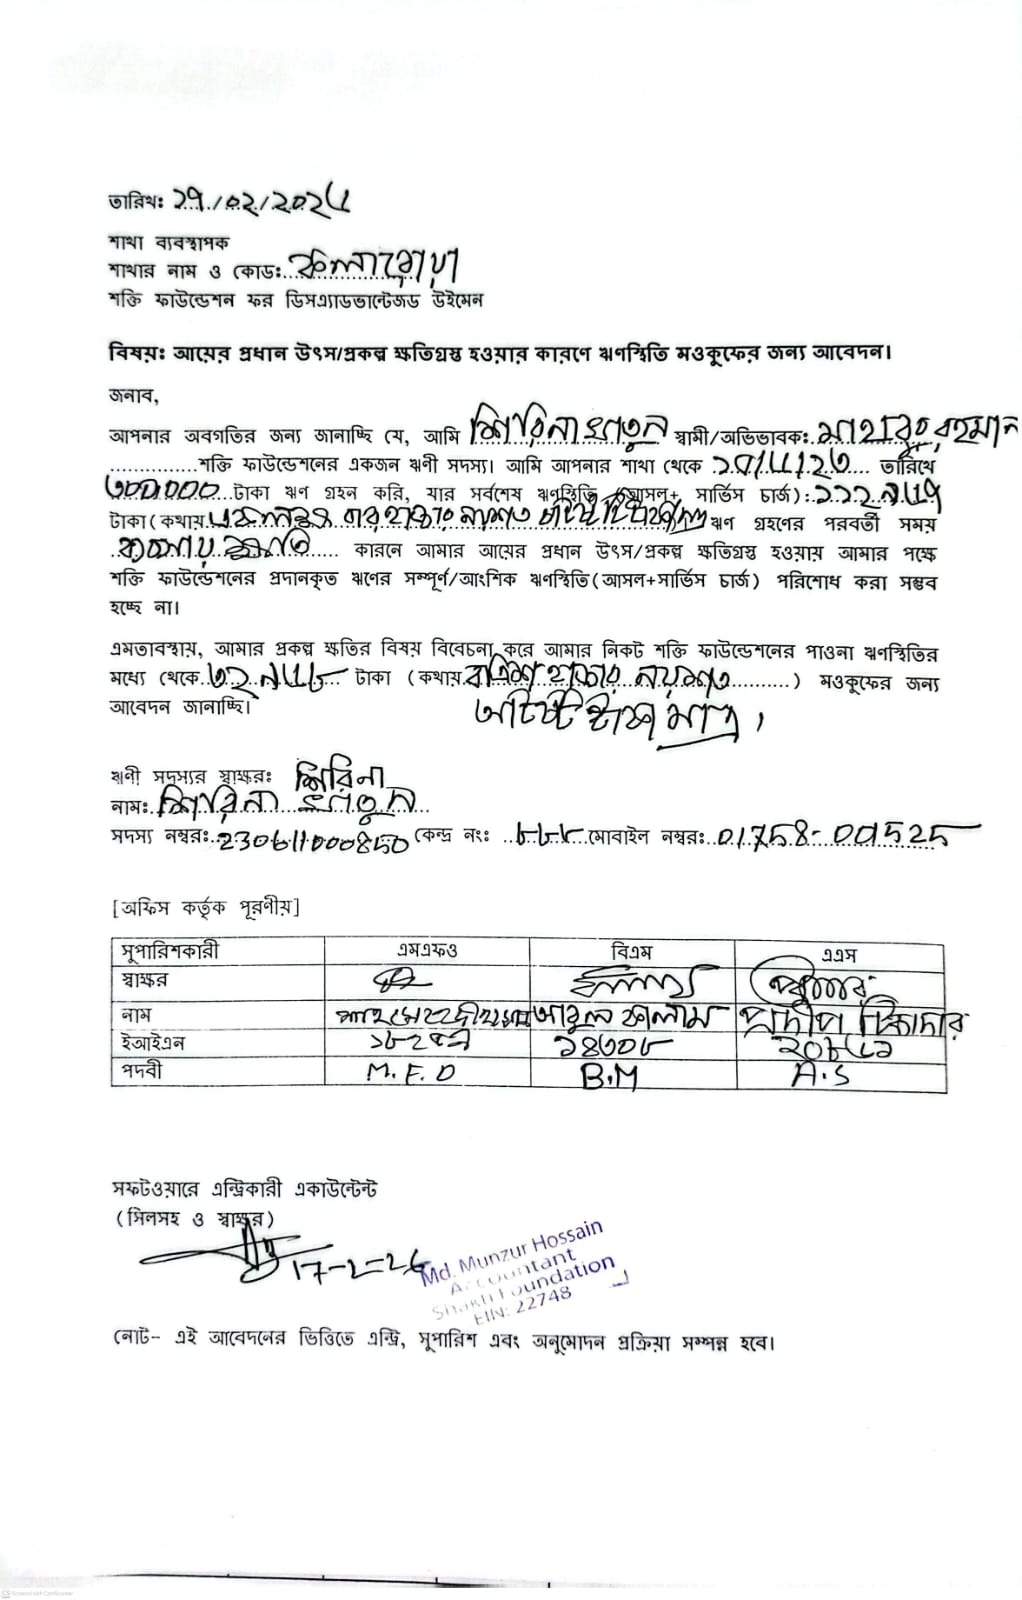 তারিখঃ ১৭/০২/২০২৬
শাখা ব্যবস্থাপক
শাখার নাম ও কোডঃ কলারোয়া
শক্তি ফাউন্ডেশন ফর ডিসএ্যাডভান্টেজড উইমেন
বিষয়ঃ আয়ের প্রধান উৎস/প্রকল্প ক্ষতিগ্রস্ত হওয়ার কারণে ঋণস্থিতি মওকুফের জন্য আবেদন।
জনাব,
আপনার অবগতির জন্য জানাচ্ছি যে, আমি শিরিনা খাতুন স্বামী/অভিভাবকঃ মাহাবুবুর রহমান
শক্তি ফাউন্ডেশনের একজন ঋণী সদস্য। আমি আপনার শাখা থেকে তারিখে
৩০০০০০ টাকা ঋণ গ্রহন করি, যার সর্বশেষ ঋণস্থিতি (আসল+ সার্ভিস চার্জ):
টাকা (কথায় এক লক্ষ বার হাজার নয়শত মাত্র ঋণ গ্রহণের পরবর্তী সময়
ব্যবসায় ক্ষতি কারনে আমার আয়ের প্রধান উৎস/প্রকল্প ক্ষতিগ্রস্ত হওয়ায় আমার পক্ষে
শক্তি ফাউন্ডেশনের প্রদানকৃত ঋণের সম্পূর্ণ/আংশিক ঋণস্থিতি(আসল+সার্ভিস চার্জ) পরিশোধ করা সম্ভব
হচ্ছে না।
এমতাবস্থায়, আমার প্রকল্প ক্ষতির বিষয় বিবেচনা করে আমার নিকট শক্তি ফাউন্ডেশনের পাওনা ঋণস্থিতির
মধ্যে থেকে টাকা (কথায় বত্রিশ হাজার নয়শত ) মওকুফের জন্য
আবেদন জানাচ্ছি। টাকা মাত্র।
ঋণী সদস্যর স্বাক্ষরঃ শিরিনা
নামঃ শিরিনা খাতুন
সদস্য নম্বরঃ কেন্দ্র নংঃ মোবাইল নম্বরঃ 01758-001525
[অফিস কর্তৃক পূরণীয়]
সুপারিশকারী এমএফও বিএম এএস
স্বাক্ষর
নাম আবুল কালাম প্রদীপ সিকাদার
ইআইএন ১৪৩০৮ ২০৮৫১
পদবী M.F.O B.M A.S
সফটওয়ারে এন্ট্রিকারী একাউন্টেন্ট
(সিলসহ ও স্বাক্ষর)
17-2-26
Md. Munzur Hossain
Accountant
Shakti Foundation
EIN: 22748
নোট- এই আবেদনের ভিত্তিতে এন্ট্রি, সুপারিশ এবং অনুমোদন প্রক্রিয়া সম্পন্ন হবে।